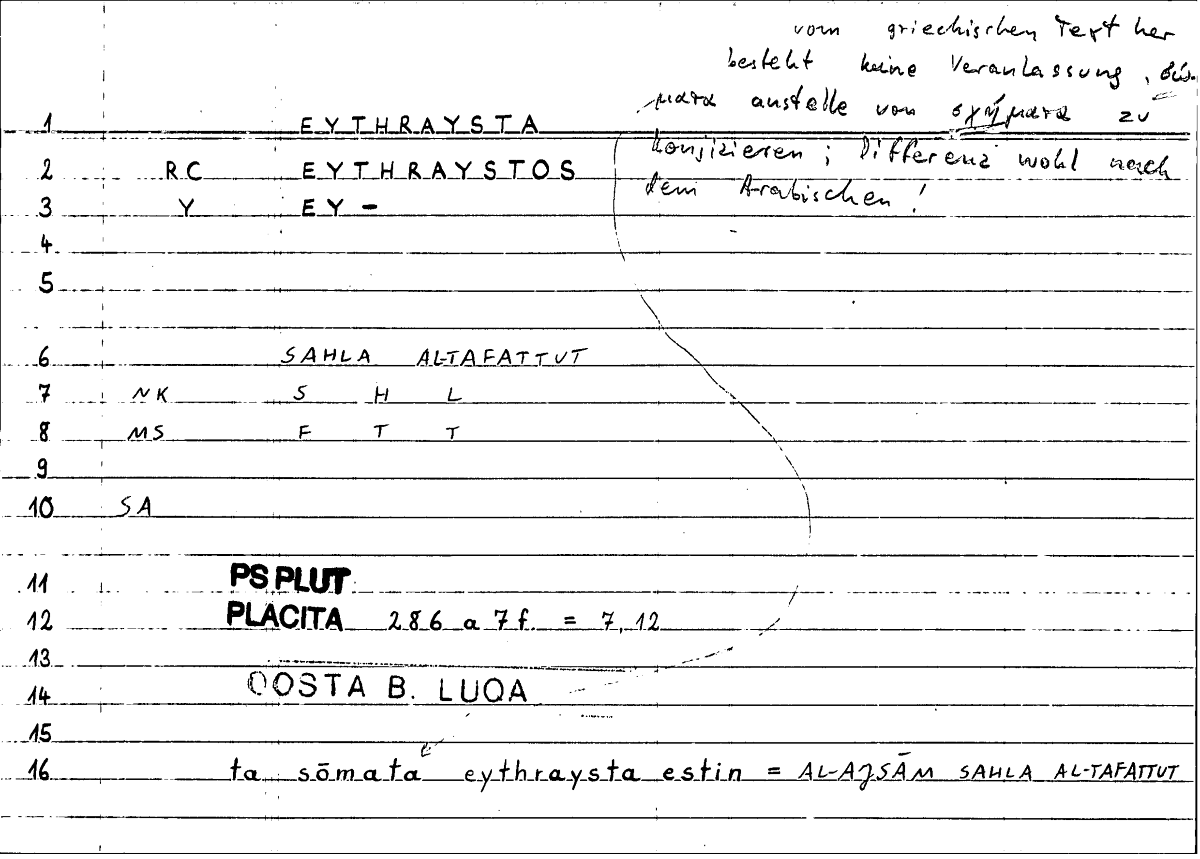 vom griechischen Text her
besteht keine Veranlassung, σώ-
1 EYTHRAYSTA
ματα anstelle von σχήματα zu
2 RC EYTHRAYSTOS
konjizieren; Differenz wohl nach
3 Y EY-
dem Arabischen!
4
5
6 SAHLA AL-TAFATTUT
7 NK S H L
8 MS F T T
9
10 SA
11 PS PLUT
12 PLACITA 286 a 7 f. = 7,12
13
14 QOSTA B. LUQA
15
16 ta sōmata eythraysta estin = AL-AJSĀM SAHLA AL-TAFATTUT